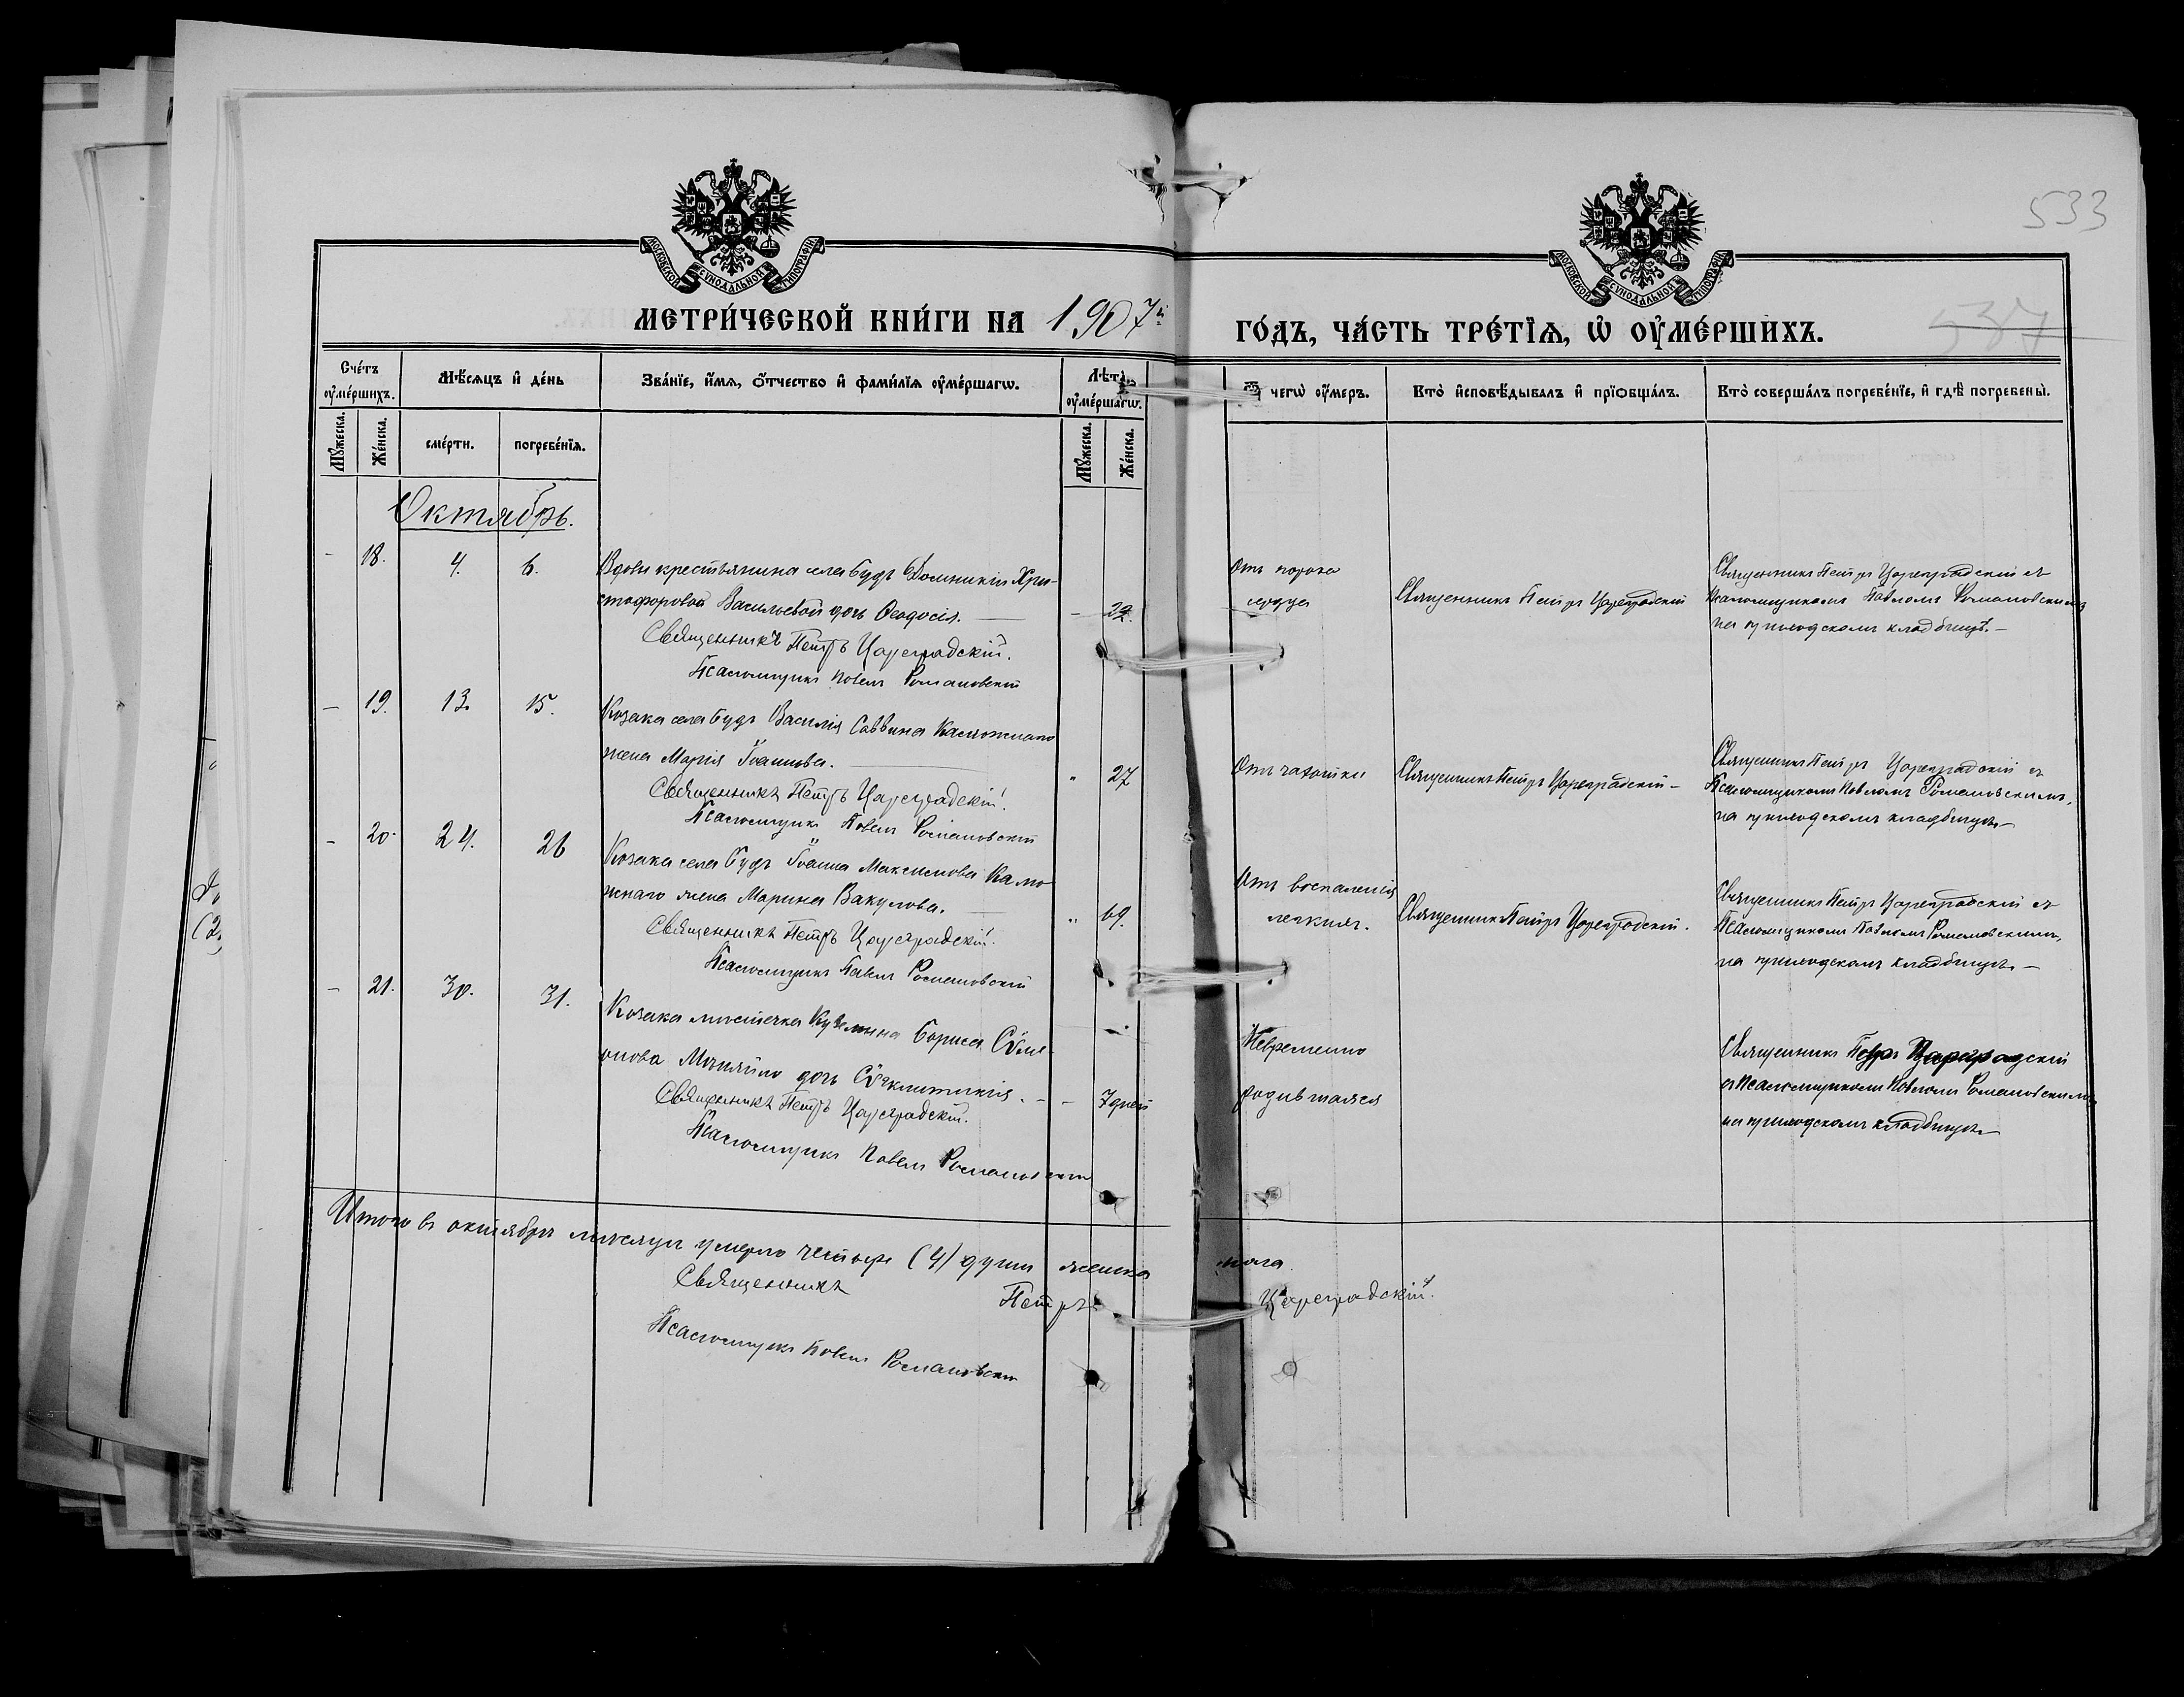 533
537
МОСКОВСКОЙ СѴНОДАЛЬНОЙ ТИПОГРАФІИ
МОСКОВСКОЙ СѴНОДАЛЬНОЙ ТИПОГРАФІИ
МЕТРИ́ЧЕСКОЙ КНИ́ГИ НА 1907й
ГО́ДЪ, ЧА́СТЬ ТРЕ́ТЇѦ, Ѡ҆ ОУ҆МЕ́РШИХЪ.
Сче́тъ оу҆ме́ршихъ.
Мѣ́сяцъ и҆ де́нь
Зва́нїе, и҆́мѧ, ѻ҆́тчество и҆ фами́лїѧ оу҆ме́ршагѡ.
Лѣ́та оу҆ме́ршагѡ.
Ѿ чегѡ̀ оу҆́меръ.
Кто̀ и҆сповѣ́дывалъ и҆ прїѻбща́лъ.
Кто̀ соверша́лъ погребе́нїе, и҆ гдѣ̀ погребены̀.
Мꙋ́жеска.
Же́нска.
сме́рти.
погребе́нїѧ.
Мꙋ́жеска.
Же́нска.
Октябрь.
- 18. 4. 6. Вдовы крестьянина села Будъ Домникіи Хри-
стофоровой Васильевой дочь Ѳеодосія. —
- 22.
Священникъ Петръ Цареградскій.
Псаломщикъ Павелъ Романовскій
Отъ порока
сердца
Священникъ Петръ Цареградскій
Священникъ Петръ Цареградскій съ
Псаломщикомъ Павломъ Романовскимъ
на приходскомъ кладбищѣ. —
- 19. 13. 15. Козака села Будъ Василія Саввина
жена Марія Іоаннова. —
" 27
Священникъ Петръ Цареградскій.
Псаломщикъ Павелъ Романовскій
Отъ чахотки
Священникъ Петръ Цареградскій —
Священникъ Петръ Цареградскій съ
Псаломщикомъ Павломъ Романовскимъ,
на приходскомъ кладбищѣ —
- 20. 24. 26 Козака села Будъ Іоанна Максимова
жена Марина Вакулова. —
" 69.
Священникъ Петръ Цареградскій.
Псаломщикъ Павелъ Романовскій
Отъ воспаленія
легкихъ.
Священникъ Петръ Цареградскій.
Священникъ Петръ Цареградскій съ
Псаломщикомъ Павломъ Романовскимъ,
на приходскомъ кладбищѣ —
- 21. 30. 31. Козака мѣстечка Куземина Бориса Сѵме-
онова дочь Сѵнклитикія. -
- 7 дней
Священникъ Петръ Цареградскій.
Псаломщикъ Павелъ Романовскій
Невременно
родившаяся
Священникъ Петръ Цареградскій
съ Псаломщикомъ Павломъ Романовскимъ
на приходскомъ кладбищѣ —
Итого въ октябрѣ мѣсяцѣ умерло четыре (4) души женска пола.
Священникъ Петръ Цареградскій.
Псаломщикъ Павелъ Романовскій